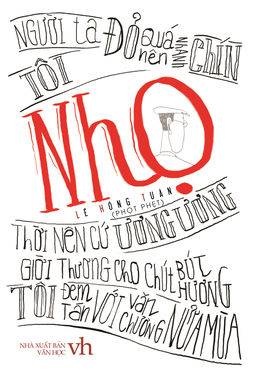 NGƯỜI ta ĐỎ quá nên NHANH CHÍN
TÔI
NhỌ
LÊ HỒNG TUÂN
(PHỌT PHẸT)
THỜI NÊN CỨ ƯƠNG ƯƠNG
GIỜI THƯƠNG CHO CHÚT BÚT HƯƠNG
TÔI ĐEM TÁN VỚI VĂN CHƯƠNG NỬA MÙA
NHÀ XUẤT BẢN
VĂN HỌC vh